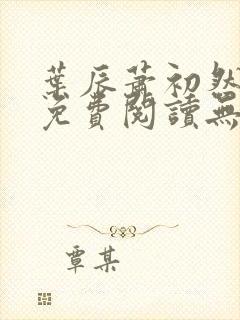 葉辰蕭初然
免費閱讀無
覃某